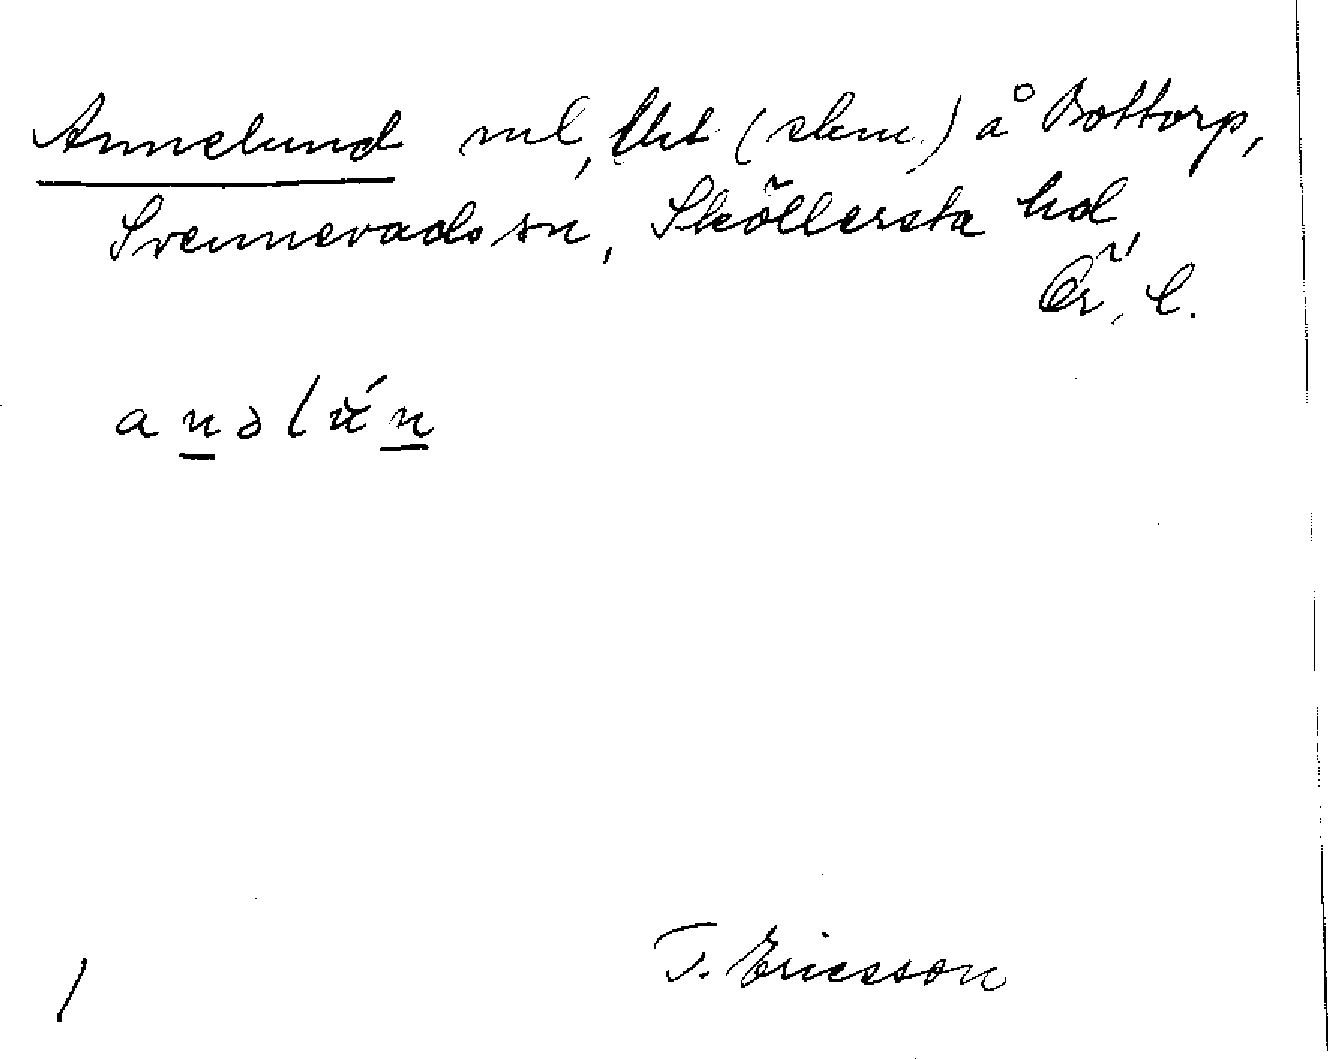 Annelund ml, (skm.) å Bottorp,
Svennevads sn, Sköllersta hd,
Ör. l.
anəlún
T. Ericsson
/